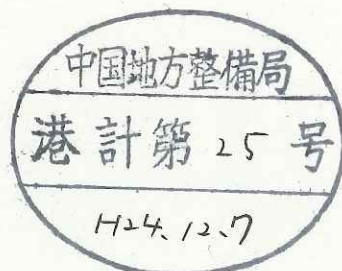 中国地方整備局
港計第25号
H24.12.7